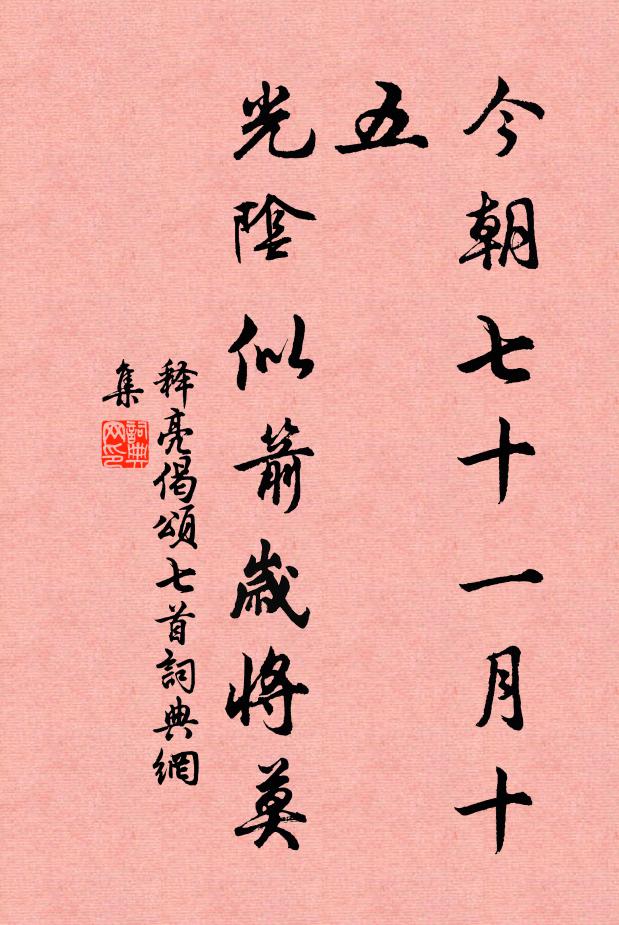 今朝七十一月十
五
光陰似箭歲將莫
释亮偈頌七首詞典網
集
詞典网印